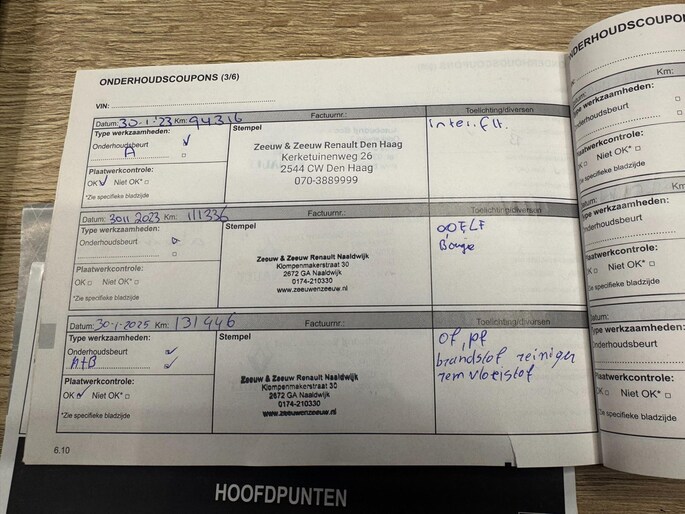 ONDERHOUDSCOUPONS (3/6)
VIN:
Datum: 30-1-'23 Km: 94316
Factuurnr.:
Toelichting/diversen
Type werkzaamheden:
Onderhoudsbeurt
A
Plaatwerkcontrole:
OK Niet OK*
*Zie specifieke bladzijde
Stempel
Zeeuw & Zeeuw Renault Den Haag
Kerketuinenweg 26
2544 CW Den Haag
070-3889999
Inter. flt.
Datum: 30 11 2023 Km: 111336
Factuurnr.:
Toelichting/diversen
Type werkzaamheden:
Onderhoudsbeurt
Plaatwerkcontrole:
OK Niet OK*
*Zie specifieke bladzijde
Stempel
Zeeuw & Zeeuw Renault Naaldwijk
Klompenmakerstraat 30
2672 GA Naaldwijk
0174-210330
www.zeeuwenzeeuw.nl
Bougie
Datum: 30-1-2025 Km: 131446
Factuurnr.:
Toelichting/diversen
Type werkzaamheden:
Onderhoudsbeurt
A+B
Plaatwerkcontrole:
OK Niet OK*
*Zie specifieke bladzijde
Stempel
Zeeuw & Zeeuw Renault Naaldwijk
Klompenmakerstraat 30
2672 GA Naaldwijk
0174-210330
www.zeeuwenzeeuw.nl
of, pf
brandstof reiniger
rem vloeistof
6.10
ONDERHOUDSCOUPO
Km:
Type werkzaamheden:
Onderhoudsbeurt
Plaatwerkcontrole:
OK Niet OK*
*Zie specifieke bladzijde
Type werkzaamheden:
Onderhoudsbeurt
Plaatwerkcontrole:
OK Niet OK*
*Zie specifieke bladzijde
Datum:
Type werkzaamheden:
Onderhoudsbeurt
Plaatwerkcontrole:
OK Niet OK*
*Zie specifieke bladzijde
HOOFDPUNTEN